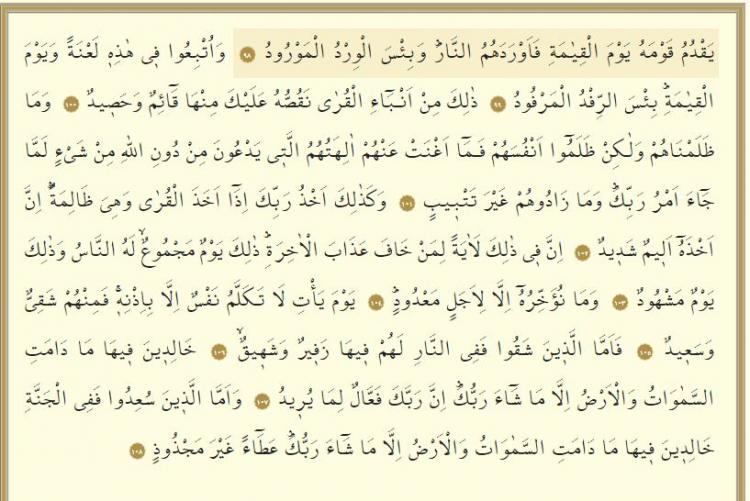 يَقْدُمُ قَوْمَهُ يَوْمَ الْقِيٰمَةِ فَاَوْرَدَهُمُ النَّارَۜ وَبِئْسَ الْوِرْدُ الْمَوْرُودُ ﴿٩٨﴾ وَاُتْبِعُوا ف۪ي هٰذِه۪ لَعْنَةً وَيَوْمَ
الْقِيٰمَةِۜ بِئْسَ الرِّفْدُ الْمَرْفُودُ ﴿٩٩﴾ ذٰلِكَ مِنْ اَنْبَٓاءِ الْقُرٰى نَقُصُّهُ عَلَيْكَ مِنْهَا قَٓائِمٌ وَحَص۪يدٌ ﴿١٠٠﴾ وَمَا
ظَلَمْنَاهُمْ وَلٰكِنْ ظَلَمُٓوا اَنْفُسَهُمْ فَمَٓا اَغْنَتْ عَنْهُمْ اٰلِهَتُهُمُ الَّت۪ي يَدْعُونَ مِنْ دُونِ اللّٰهِ مِنْ شَيْءٍ لَمَّا
جَٓاءَ اَمْرُ رَبِّكَۜ وَمَا زَادُوهُمْ غَيْرَ تَتْب۪يبٍ ﴿١٠١﴾ وَكَذٰلِكَ اَخْذُ رَبِّكَ اِذَٓا اَخَذَ الْقُرٰى وَهِيَ ظَالِمَةٌۜ اِنَّ
اَخْذَهُٓ اَل۪يمٌ شَد۪يدٌ ﴿١٠٢﴾ اِنَّ ف۪ي ذٰلِكَ لَاٰيَةً لِمَنْ خَافَ عَذَابَ الْاٰخِرَةِۜ ذٰلِكَ يَوْمٌ مَجْمُوعٌۙ لَهُ النَّاسُ وَذٰلِكَ
يَوْمٌ مَشْهُودٌ ﴿١٠٣﴾ وَمَا نُؤَخِّرُهُٓ اِلَّا لِاَجَلٍ مَعْدُودٍۜ ﴿١٠٤﴾ يَوْمَ يَأْتِ لَا تَكَلَّمُ نَفْسٌ اِلَّا بِاِذْنِه۪ۚ فَمِنْهُمْ شَقِيٌّ
وَسَع۪يدٌ ﴿١٠٥﴾ فَاَمَّا الَّذ۪ينَ شَقُوا فَفِي النَّارِ لَهُمْ ف۪يهَا زَف۪يرٌ وَشَه۪يقٌۙ ﴿١٠٦﴾ خَالِد۪ينَ ف۪يهَا مَا دَامَتِ
السَّمٰوَاتُ وَالْاَرْضُ اِلَّا مَا شَٓاءَ رَبُّكَۜ اِنَّ رَبَّكَ فَعَّالٌ لِمَا يُر۪يدُ ﴿١٠٧﴾ وَاَمَّا الَّذ۪ينَ سُعِدُوا فَفِي الْجَنَّةِ
خَالِد۪ينَ ف۪يهَا مَا دَامَتِ السَّمٰوَاتُ وَالْاَرْضُ اِلَّا مَا شَٓاءَ رَبُّكَۜ عَطَٓاءً غَيْرَ مَجْذُوذٍ ﴿١٠٨﴾